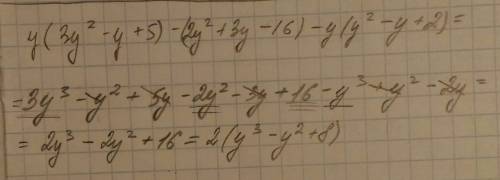 y(3y² - y + 5) - (2y² + 3y - 16) - y(y² - y + 2) =
= 3y³ - y² + 5y - 2y² - 3y + 16 - y³ + y² - 2y =
= 2y³ - 2y² + 16 = 2(y³ - y² + 8)